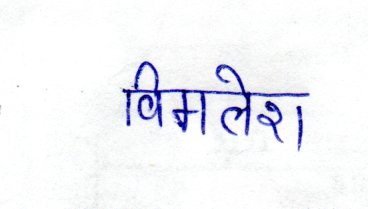 विमलेश